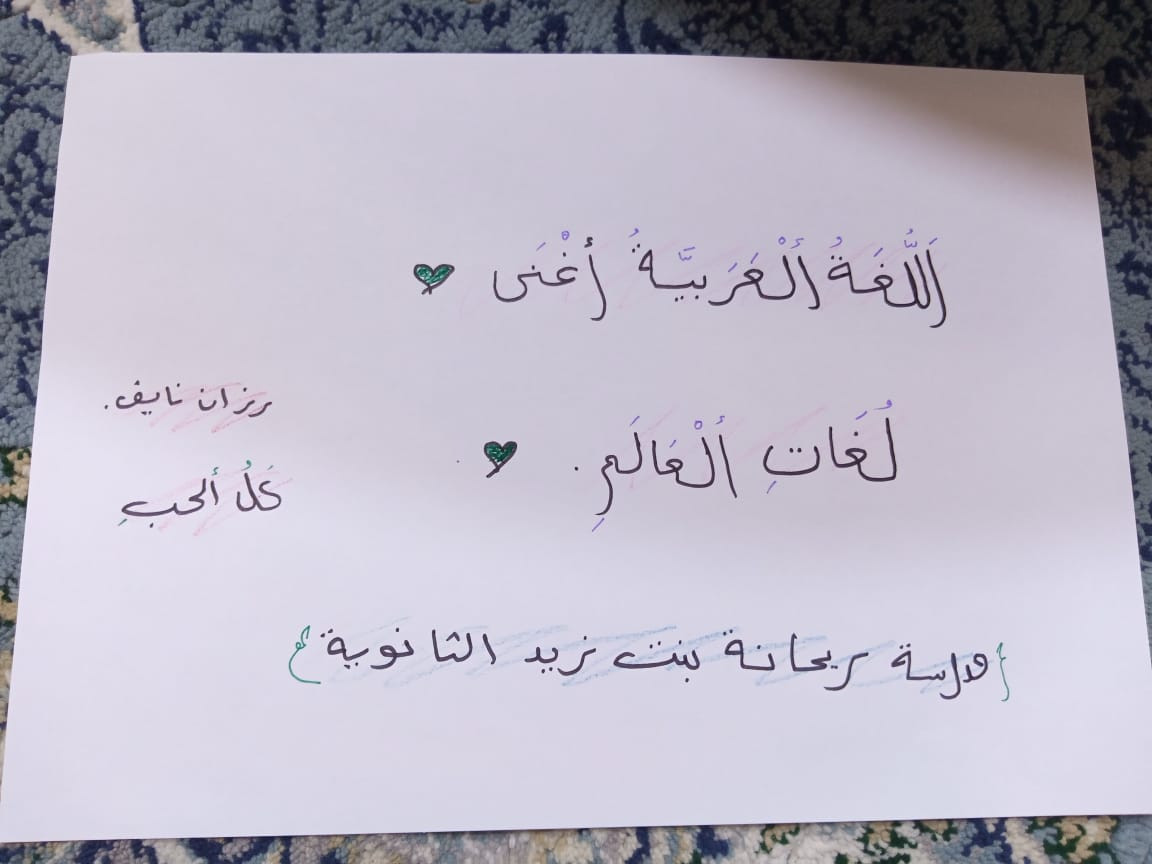 اَللُّغَةُ أَلْعَرَبيَّةُ أَغْنَى
لُغَاتِ أَلْعَالَمِ.
رزان نايف.
كَلُ ألحبِ
{مدرسة ريحانة بنت زيد الثانوية}